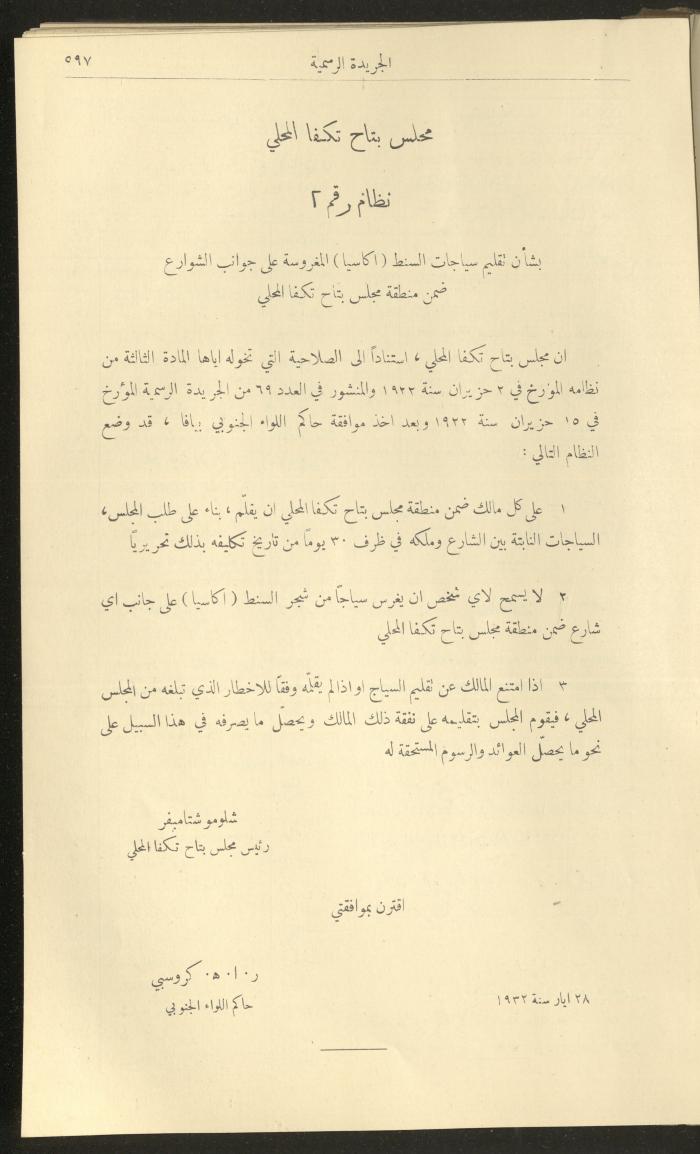 الجريدة الرسمية
٥٩٧
مجلس بتاح تكفا المحلي
نظام رقم ٢
بشأن تقليم سياجات السنط (اكاسيا) المغروسة على جوانب الشوارع
ضمن منطقة مجلس بتاح تكفا المحلي
ان مجلس بتاح تكفا المحلي ، استناداً الى الصلاحية التي تخوله اياها المادة الثالثة من
نظامه المؤرخ في ٢ حزيران سنة ١٩٢٢ والمنشور في العدد ٦٩ من الجريدة الرسمية المؤرخ
في ١٥ حزيران سنة ١٩٢٢ وبعد اخذ موافقة حاكم اللواء الجنوبي بيافا ، قد وضع
النظام التالي :
١ على كل مالك ضمن منطقة مجلس بتاح تكفا المحلي ان يقلّم ، بناء على طلب المجلس،
السياجات النابتة بين الشارع وملكه في ظرف ٣٠ يوماً من تاريخ تكليفه بذلك تحريريّاً
٢ لا يسمح لاي شخص ان يغرس سياجاً من شجر السنط (اكاسيا) على جانب اي
شارع ضمن منطقة مجلس بتاح تكفا المحلي
٣ اذا امتنع المالك عن تقليم السياج او اذا لم يقلّمه وفقاً للاخطار الذي تبلغه من المجلس
المحلي ، فيقوم المجلس بتقليمه على نفقة ذلك المالك ويحصلّ ما يصرفه في هذا السبيل على
نحو ما يحصلّ العوائد والرسوم المستحقة له
شلومو شتامبفر
رئيس مجلس بتاح تكفا المحلي
اقترن بموافقتي
ر٠ ا٠ ه٠ كروسبي
٢٨ ايار سنة ١٩٣٢
حاكم اللواء الجنوبي